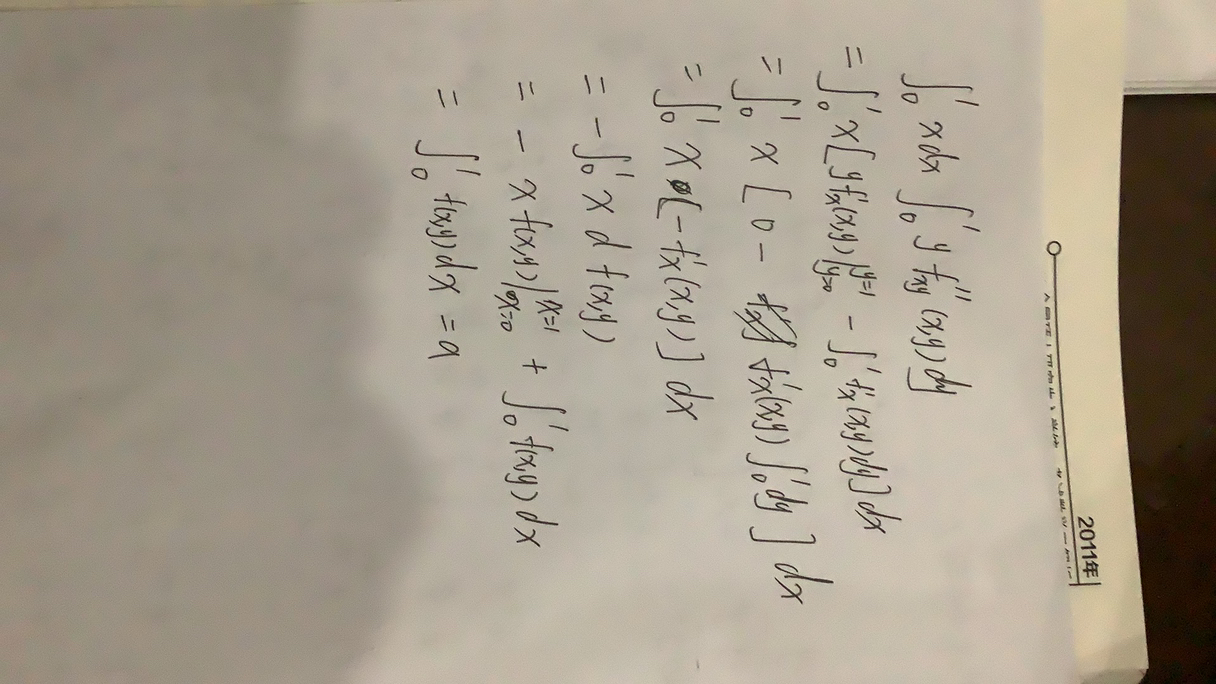 ∫₀¹ x dx ∫₀¹ y f''xy (x,y) dy
= ∫₀¹ x [ y f'x(x,y) |y=1 y=0 − ∫₀¹ f'x (x,y) dy ] dx
= ∫₀¹ x [ 0 − f'x(x,y) ∫₀¹ dy ] dx
= ∫₀¹ x [ − f'x(x,y) ] dx
= − ∫₀¹ x d f(x,y)
= − x f(x,y) |x=1 x=0 + ∫₀¹ f(x,y) dx
= ∫₀¹ f(x,y) dx = a
2011年